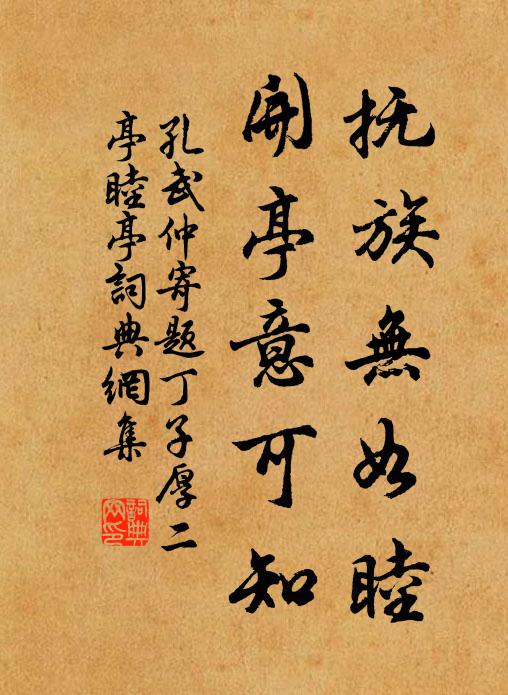 抚族無如睦
開亭意可知
孔武仲寄题丁子厚二
亭睦亭詞典網集
詞典
网印